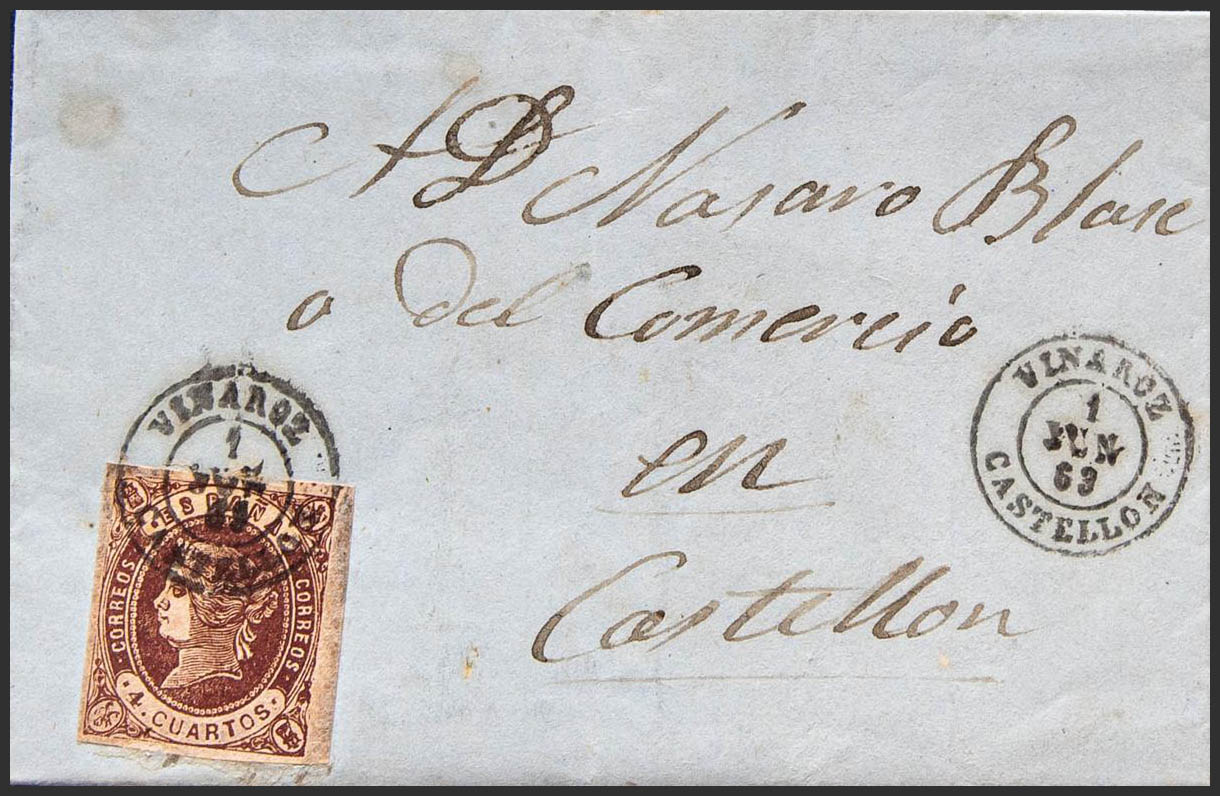 A D Nasaro Blasc
o del Comercio
en
Castellon
VINAROZ
1
JUN
63
CASTELLON
VINAROZ
1
JUN
63
ESPAÑA
CORREOS
CORREOS
4 CUARTOS